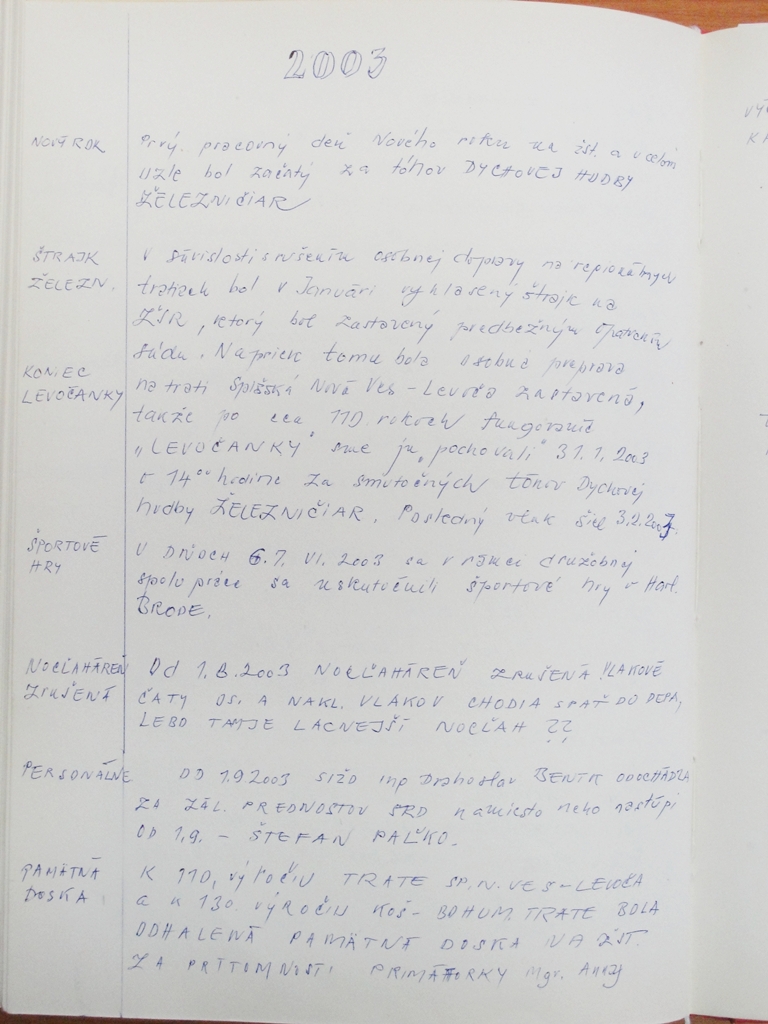 2003
NOVÝ ROK
Prvý pracovný deň Nového roku na žst. a v celom
uzle bol začatý za tónov DYCHOVEJ HUDBY
ŽELEZNIČIAR
ŠTRAJK
ŽELEZN.
V súvislosti s rušením osobnej dopravy na regionálnych
tratiach bol v Januári vyhlásený štrajk na
ŽSR, ktorý bol zastavený predbežným opatrením
súdu. Napriek tomu bola osobná preprava
KONIEC
LEVOČANKY
na trati Spišská Nová Ves - Levoča zastavená,
takže po cca 110 rokoch fungovania
"LEVOČANKY" sme ju "pochovali" 31.1.2003
o 14°° hodine za smutočných tónov Dychovej
hudby ŽELEZNIČIAR. Posledný vlak šiel 3.2.2003.
ŠPORTOVÉ
HRY
V DŇOCH 6.7. VI. 2003 sa v rámci družobnej
spolupráce sa uskutočnili športové hry v Havl.
BRODE.
NOCĽAHÁREŇ
ZRUŠENÁ
Od 1.8.2003 NOCĽAHÁREŇ ZRUŠENÁ VLAKOVÉ
ČATY OS. A NAKL. VLAKOV CHODIA SPAŤ DO DEPA,
LEBO TAM JE LACNEJŠÍ NOCĽAH ??
PERSONÁLNE
OD 1.9.2003 Drahoslav ODCHÁDZA
ZA PREDNOSTOV SRD namiesto neho nastúpi
OD 1.9. - ŠTEFAN PAĽKO.
PAMÄTNÁ
DOSKA
K 110. výročiu TRATE SP. N. VES - LEVOČA
a k 130. VÝROČIU KOŠ - BOHUM. TRATE BOLA
ODHALENÁ PAMÄTNÁ DOSKA NA ŽST.
ZA PRÍTOMNOSTI PRIMÁTORKY Mgr.